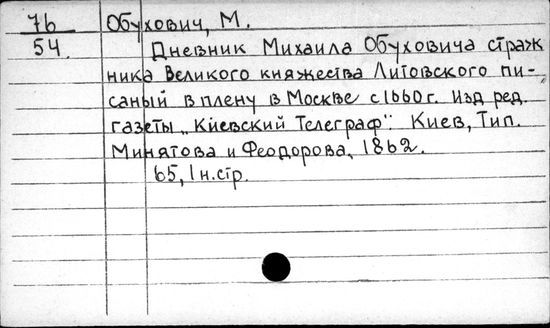 76 Обухович, М.
54. Дневник Михаила Обуховича страж
ника Великого княжества Литовского пи-
саный в плену в Москве с 1660 г. Изд ред.
газеты „Киевский Телеграф": Киев, Тип.
Минятова и Феодорова, 1862.
65, 1 н.стр.